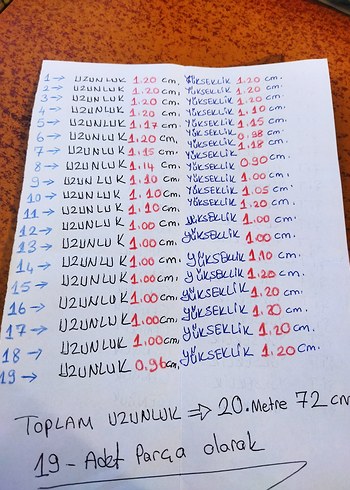 1 → UZUNLUK 1.20 cm, YÜKSEKLİK 1.20 cm.
2 → UZUNLUK 1.20 cm, YÜKSEKLİK 1.20 cm.
3 → UZUNLUK 1.20 cm, YÜKSEKLİK 1.20 cm.
4 → UZUNLUK 1.20 cm, YÜKSEKLİK 1.10 cm.
5 → UZUNLUK 1.17 cm, YÜKSEKLİK 1.15 cm.
6 → UZUNLUK 1.20 cm, YÜKSEKLİK 0.98 cm.
7 → UZUNLUK 1.15 cm, YÜKSEKLİK 1.18 cm.
8 → UZUNLUK 1.14 cm, YÜKSEKLİK 0.90 cm.
9 → UZUNLUK 1.10 cm, YÜKSEKLİK 1.00 cm.
10 → UZUNLUK 1.10 cm, YÜKSEKLİK 1.05 cm.
11 → UZUNLUK 1.10 cm, YÜKSEKLİK 1.20 cm.
12 → UZUNLUK 1.00 cm, YÜKSEKLİK 1.00 cm.
13 → UZUNLUK 1.00 cm, YÜKSEKLİK 1.00 cm.
14 → UZUNLUK 1.00 cm, YÜKSEKLİK 1.10 cm.
15 → UZUNLUK 1.00 cm, YÜKSEKLİK 1.20 cm.
16 → UZUNLUK 1.00 cm, YÜKSEKLİK 1.20 cm.
17 → UZUNLUK 1.00 cm, YÜKSEKLİK 1.20 cm.
18 → UZUNLUK 1.00 cm, YÜKSEKLİK 1.20 cm.
19 → UZUNLUK 0.96 cm, YÜKSEKLİK 1.20 cm.
TOPLAM UZUNLUK ⇒ 20.Metre 72 cm
19 - Adet Parça olarak